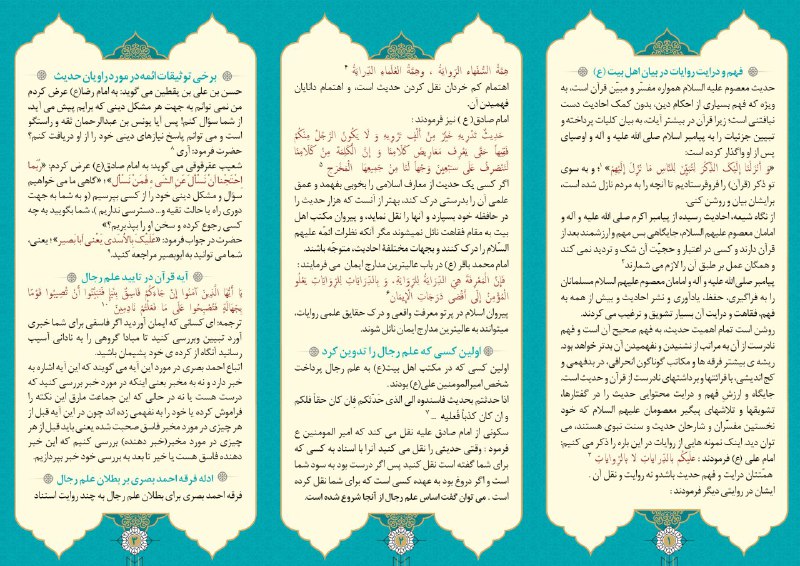 فهم و درایت روایات در بیان اهل بیت (ع)
حدیث معصوم علیه السلام همواره مفسّر و مبیّن قرآن است، به
ویژه که فهم بسیاری از احکام دین، بدون کمک احادیث دست
نیافتنی است؛ زیرا قرآن در بیشتر آیات، به بیان کلیات پرداخته و
تبیین جزئیات را به پیامبر اسلام صلی الله علیه و آله و اوصیای
پس از او واگذار کرده است:
«وَ أَنْزَلْنَا إِلَیْک الذِّکْرَ لِتُبَیِّنَ لِلنَّاسِ مَا نُزِّلَ إِلَیْهِمْ» ۱؛ و به سوی
تو ذکر (قرآن) را فروفرستادیم تا آنچه را به مردم نازل شده است،
برایشان بیان و روشن کنی.
از نگاه شیعه، احادیث رسیده از پیامبر اکرم صلی الله علیه و آله و
امامان معصوم علیهم السلام، جایگاهی بس مهم و ارزشمند بعد از
قرآن دارند و کسی در اعتبار و حجیّت آن شک و تردید نمی کند
و همگان عمل بر طبق آن را لازم می شمارند ۲
پیامبر صلی الله علیه و آله و امامان معصوم علیهم السلام مسلمانان
را به فراگیری، حفظ، یادآوری و نشر احادیث و بیش از همه به
فهم، فقاهت و درایت آن بسیار تشویق و ترغیب می کردند.
روشن است تمام اهمیت حدیث، به فهم صحیح آن است و فهم
نادرست از آن به مراتب از نشنیدن و نفهمیدن آن بدتر خواهد بود.
ریشه ی بیشتر فرقه ها و مکاتب گوناگون انحرافی، در بدفهمی و
کج اندیشی، یا قرائتها و برداشتهای نادرست از قرآن و حدیث است.
جایگاه و ارزش فهم و درایت محتوایی حدیث را در گفتارها،
تشویقها و تلاشهای پیگیر معصومان علیهم السلام که خود
نخستین مفسّران و شارحان حدیث و سنت نبوی هستند، می
توان دید. اینک نمونه هایی از روایات در این باره را ذکر می کنیم:
امام علی (ع) فرمودند : عَلَیْکُم بِالدِّرَایَاتِ لَا بِالرِّوَایَاتِ ۳
همّتتان درایت و فهم حدیث باشدو نه روایت و نقل آن .
ایشان در روایتی دیگر فرمودند :
۱
هِمَّةُ السُّفَهَاءِ الرِّوَایَةُ ، وَهِمَّةُ العُلَمَاءِ الدِّرَایَةُ ۴
اهتمام کم خردان نقل کردن حدیث است، و اهتمام دانایان
فهمیدن آن.
امام صادق (ع ) نیز فرمودند :
حَدِیثٌ تَدْرِیهِ خَیْرٌ مِنْ أَلْفٍ تَرْوِیهِ وَ لَا یَکُونُ الرَّجُلُ مِنْکُمْ
فَقِیهاً حَتَّى یَعْرِفَ مَعَارِیضَ کَلَامِنَا وَ إِنَّ الْکَلِمَةَ مِنْ کَلَامِنَا
لَتَنْصَرِفُ عَلَى سَبْعِینَ وَجْهاً لَنَا مِنْ جَمِیعِهَا الْمَخْرَج ۵
اگر کسی یک حدیث از معارف اسلامی را بخوبی بفهمد و عمق
علمی آن را بدرستی درک کند، بهتر از آنست که هزار حدیث را
در حافظه خود بسپارد و آنها را نقل نماید، و پیروان مکتب اهل
بیت به مقام فقاهت نائل نمیشوند مگر آنکه نظرات ائمّه علیهم
السّلام را درک کنند و بجهات مختلفۀ احادیث، متوجّه باشند.
امام محمد باقر (ع) در باب عالیترین مدارج ایمان می فرمایند :
فَإِنَّ الْمَعْرِفَةَ هِیَ الدِّرَایَةُ لِلرِّوَایَةِ، وَ بِالدِّرَایَاتِ لِلرِّوَایَاتِ یَعْلُو
الْمُؤْمِنُ إِلَى أَقْصَى دَرَجَاتِ الْإِیمَانِ ۶
پیروان اسلام در پرتو معرفت واقعی و درک حقایق علمی روایات،
میتوانند به عالیترین مدارج ایمان نائل شوند.
اولین کسی که علم رجال را تدوین کرد
اولین کسی که در مکتب اهل بیت(ع) به علم رجال پرداخت
شخص امیرالمومنین علی(ع) بودند.
اذا حدثتم بحدیث فاسندوه الی الذی حدّثکم فإن کان حقاً فلکم
و ان کان کذباً فعلیه ۷
سکونی از امام صادق علیه نقل می کند که امیر المومنین ع
فرمود : وقتی حدیثی را نقل می کنید آنرا با اسناد به کسی که
برای شما گفته است نقل کنید پس اگر درست بود به سود شما
است و اگر دروغ بود به عهده کسی است که برای شما نقل کرده
است . می توان گفت اساس علم رجال از آنجا شروع شده است.
۲
برخی توثیقات ائمه در مورد راویان حدیث
حسن بن علی بن یقطین می گوید: به امام رضا(ع) عرض کردم
من نمی توانم به جهت هر مشکل دینی که برایم پیش می آید،
از شما سؤال کنم! پس آیا یونس بن عبدالرحمان ثقه و راستگو
است و می توانم پاسخ نیازهای دینی خود را از او دریافت کنم؟
حضرت فرمود: آری ۸
شعیب عقرقوفی می گوید: به امام صادق(ع) عرض کردم: «رُبّما
احْتَجْنَا أَنْ نَسْأَلَ عَنِ الشَّیء فَمَنْ نَسْأَل»؛ «گاهی ما می خواهیم
سؤال و مشکل دینی خود را از کسی بپرسیم (و به شما به جهت
دوری راه یا حالت تقیه و... دسترسی نداریم )، شما بگویید به چه
کسی رجوع کرده و سخن او را بپذیریم؟»
حضرت در جواب فرمود: «عَلَیْکَ بِالْأَسَدِی یَعْنِی أَبَا بَصِیر»؛ یعنی،
شما می توانید به ابوبصیر مراجعه کنید. ۹
آیه قرآن در تایید علم رجال
یَا أَیُّهَا الَّذِینَ آمَنُوا إِنْ جَاءَکُمْ فَاسِقٌ بِنَبَإٍ فَتَبَیَّنُوا أَنْ تُصِیبُوا قَوْمًا
بِجَهَالَةٍ فَتُصْبِحُوا عَلَى مَا فَعَلْتُمْ نَادِمِینَ ۱۰
ترجمه: ای کسانی که ایمان آوردید اگر فاسقی برای شما خبری
آورد تبیین وبررسی کنید تا مبادا گروهی را به نادانی آسیب
رسانید آنگاه از کرده ی خود پشیمان باشید.
اتباع احمد بصری در مورد این آیه می گویند که این آیه اشاره به
خبر دارد و نه به مخبر یعنی اینکه در مورد خبر بررسی کنید که
درست هست یا نه در حالی که این جماعت مارق این نکته را
فراموش کرده یا خود را به نفهمی زده اند چون در این آیه قبل از
هر چیزی در مورد مخبر فاسق صحبت شده یعنی باید قبل از هر
چیزی در مورد مخبر(خبر دهنده) بررسی کنیم که این خبر
دهنده فاسق هست یا خیر تا بعد به بررسی خود خبر بپردازیم.
ادله فرقه احمد بصری بر بطلان علم رجال
فرقه احمد بصری برای بطلان علم رجال به چند روایت استناد
۳